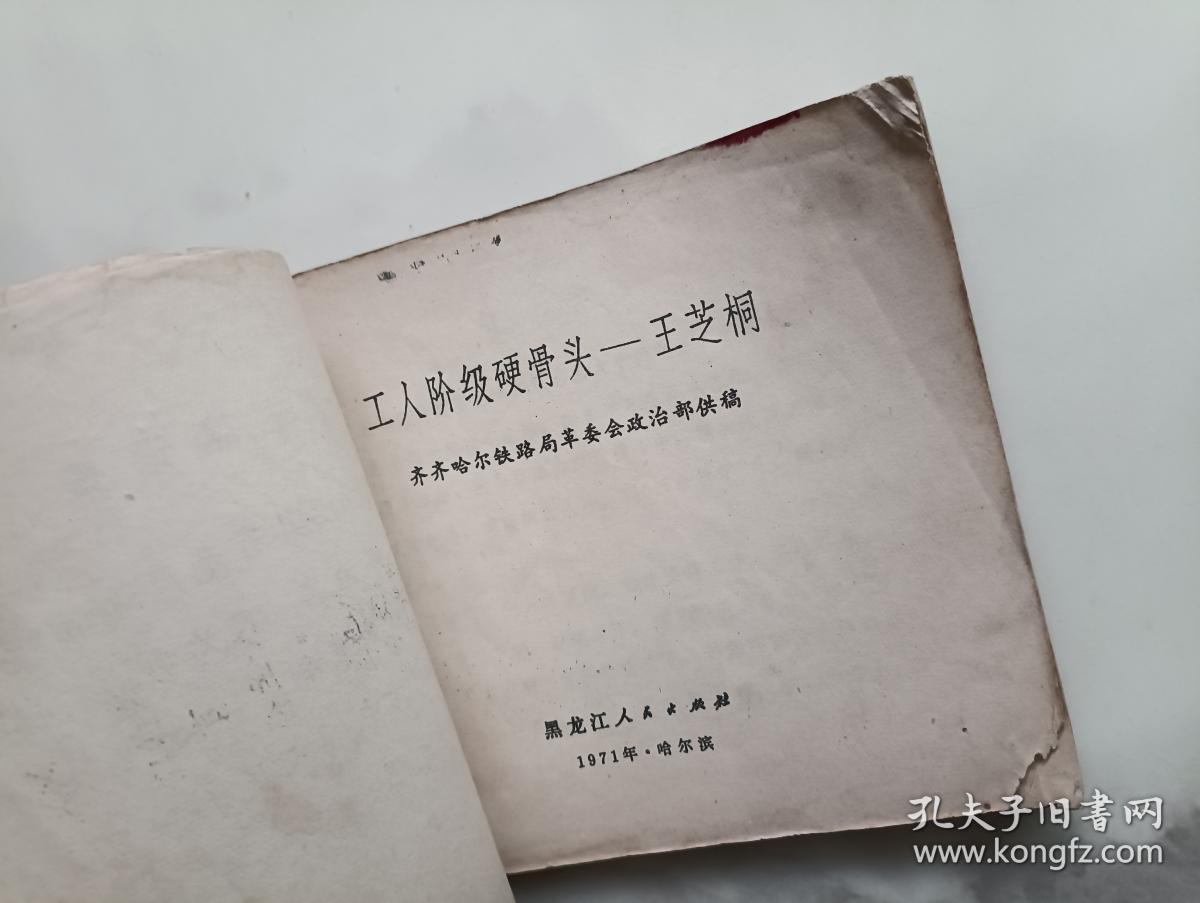 工人阶级硬骨头—王芝桐
齐齐哈尔铁路局革委会政治部供稿
黑龙江人民出版社
1971年·哈尔滨
孔夫子旧书网
www.kongfz.com